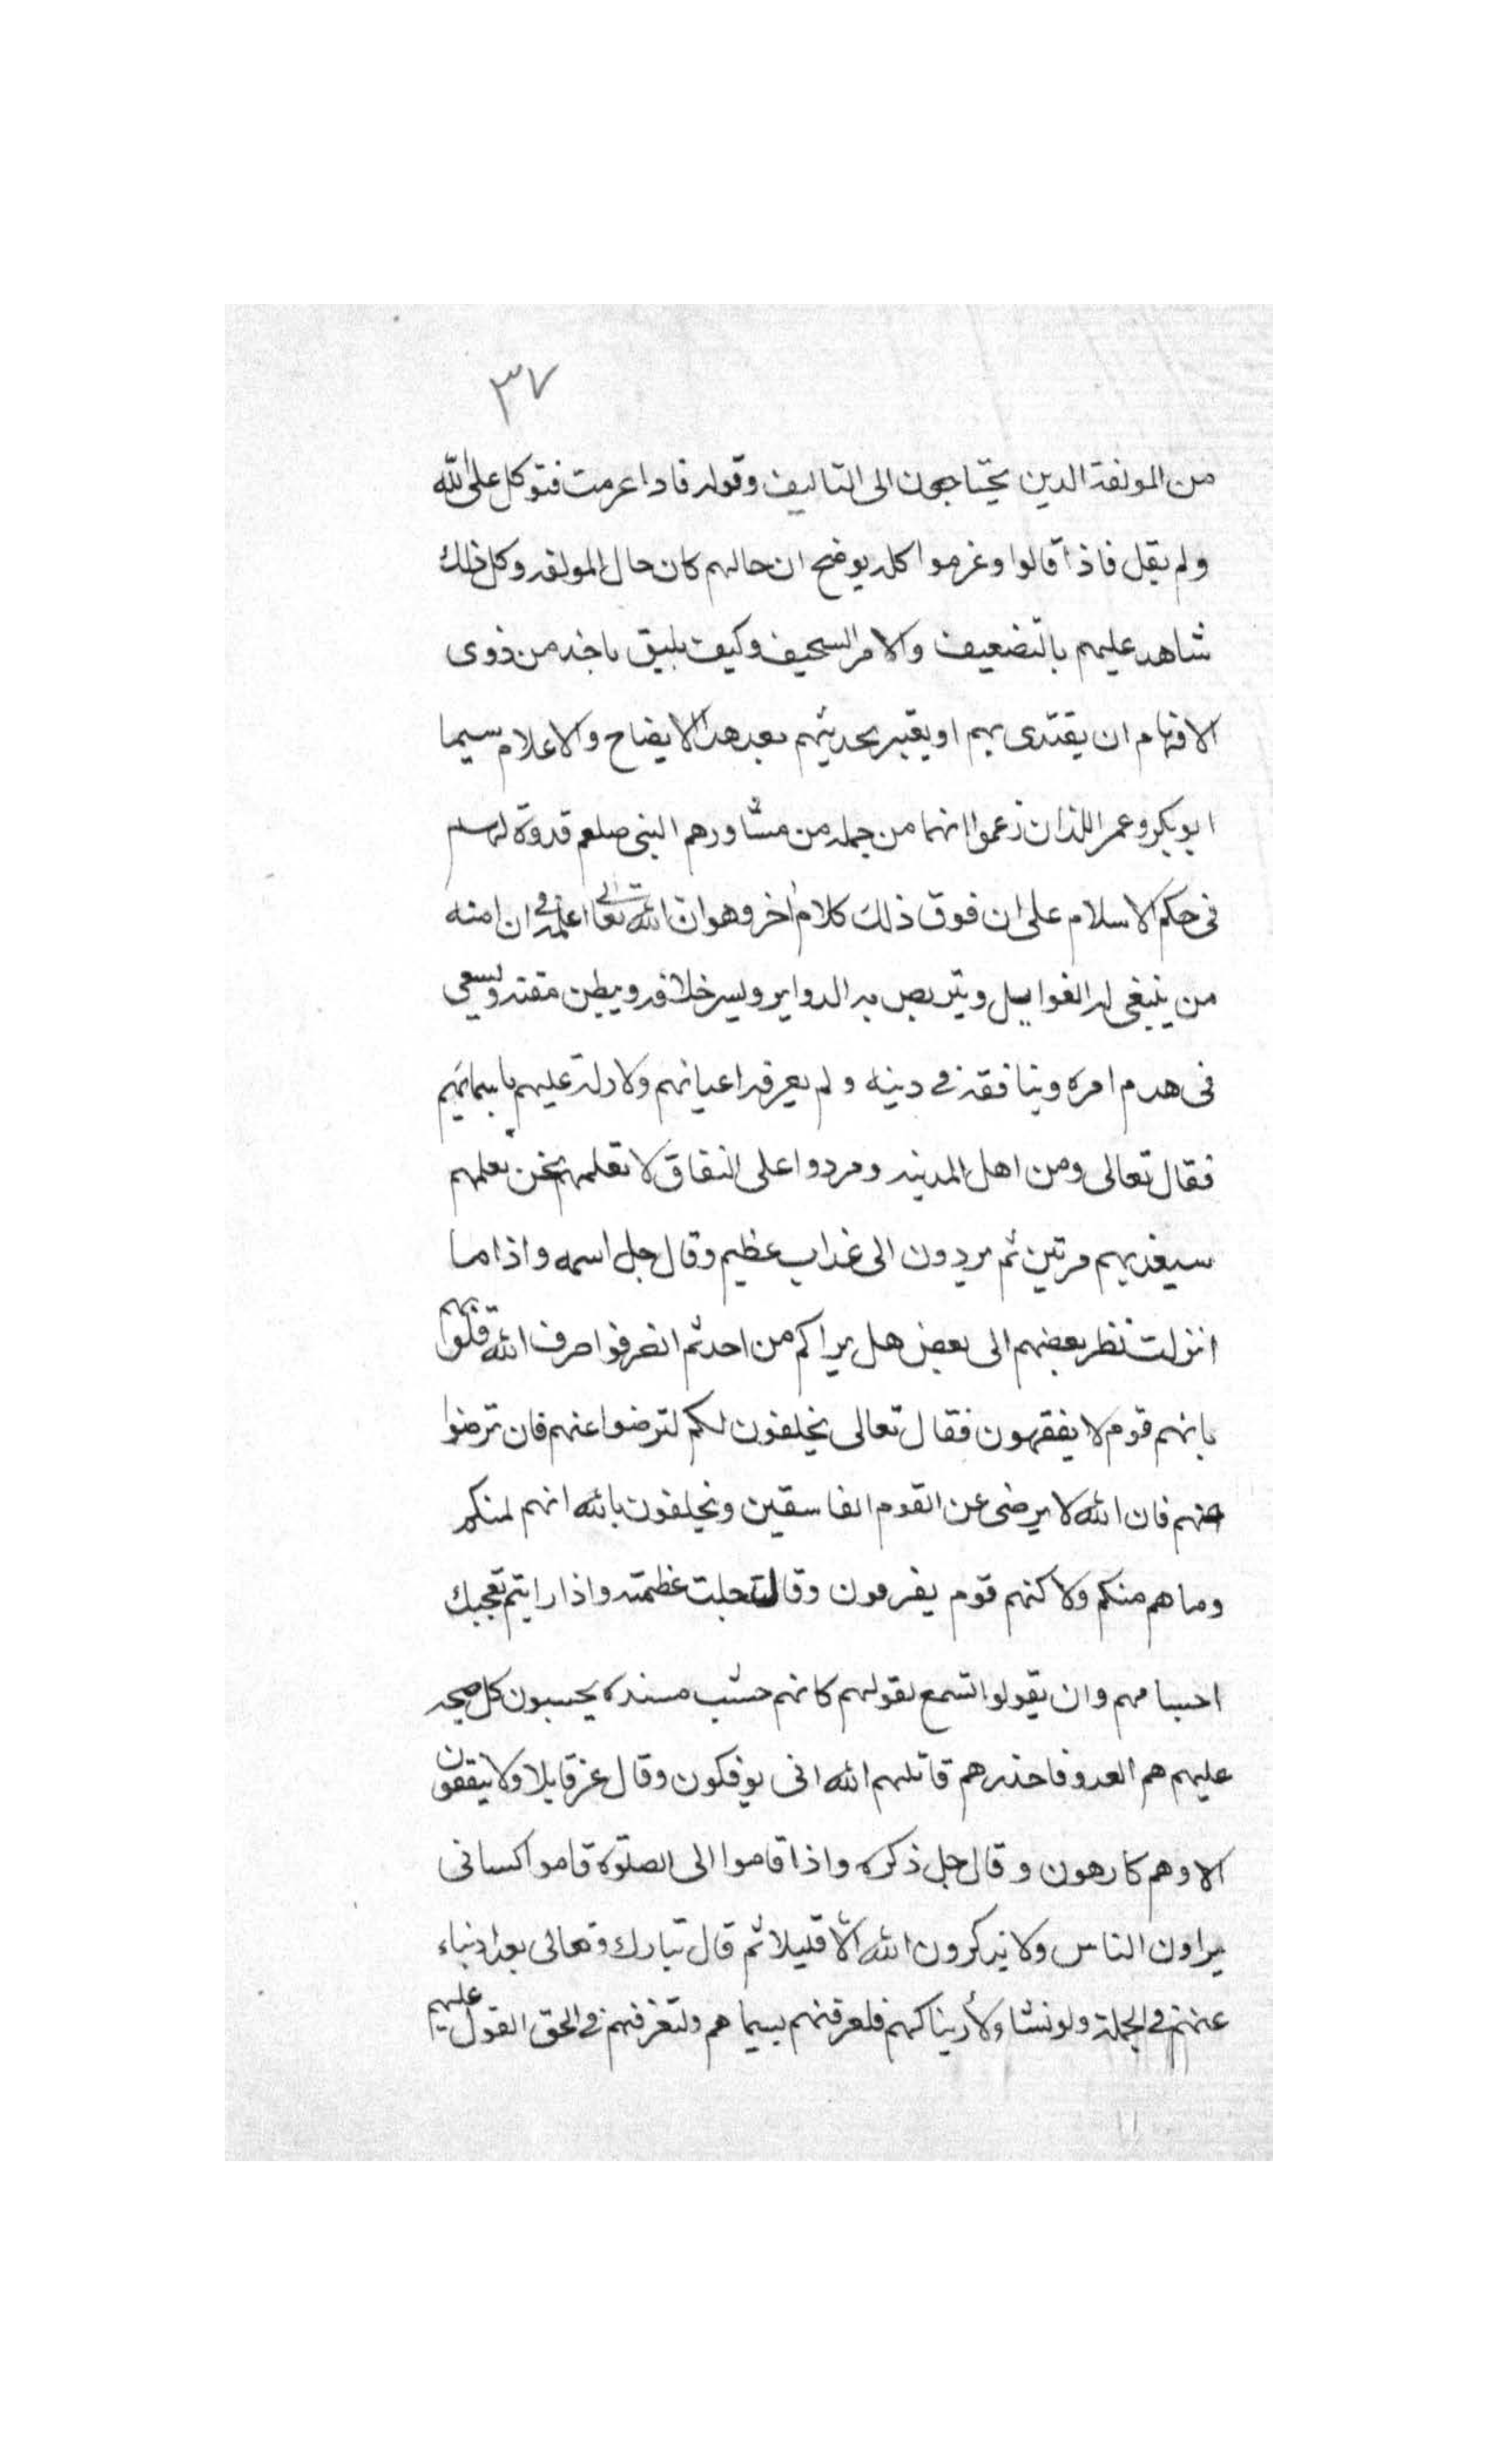 ٣٧
من المولفة الدين يحتاجون الى التاليف وقوله فاداعرمت فتوكل على الله
ولم يقل فاذا قالوا وغرموا كله يوضح ان حالهم كان حال المولفه وكل ذلك
شاهد عليهم بالتضعيف والامر السحيف وكيف يليق باخد من ذوى
الافهام ان يقتدى بهم او يعتبر بحديثهم بعد هدا الايضاح والاعلام سيما
ابو بكر وعمر اللذان زعموا انهما من جمله من مشاورهم النبى صلعم قدوة
فى حكم الاسلام على ان فوق ذلك كلام اخر وهو ان الله تعالى اعلمه ان امنه
من ينبغى له الغوايل ويتربص به الدواير ويسر خلافه ويبطن مقته ويسعى
فى هدم امره وينافقه فى دينه ولم يعرفه اعيانهم ولا دله عليهم باسمائهم
فقال تعالى ومن اهل المدينه ومردوا على النفاق لا تعلمهم نحن نعلمهم
سيعذبهم مرتين ثم يردون الى عذاب عظيم وقال جل اسمه واذاما
انزلت نظر بعضهم الى بعض هل يراكم من احد ثم انصرفوا صرف الله قلوبهم
بانهم قوم لا يفقهون فقال تعالى يحلفون لكم لترضوا عنهم فان ترضوا
عنهم فان الله لا يرضى عن القوم الفاسقين ويحلفون بالله انهم لمنكم
وما هم منكم ولاكنهم قوم يفرقون وقال جلت عظمته واذا رايتم تعجبك
اجسامهم وان يقولوا تسمع لقولهم كانهم خشب مسنده يحسبون كل صيحه
عليهم هم العدو فاحذرهم قاتلهم الله انى يوفكون وقال عز قايلا ولا ينفقون
الا وهم كارهون وقال جل ذكره واذا قاموا الى الصلوة قاموا كسالى
يراون الناس ولا يذكرون الله الا قليلا ثم قال تبارك وتعالى بعد انباء
عنهم فى الجملة ولو نشاء لأريناكهم فلعرفتهم بسيماهم ولتعرفنهم فى لحق القول عليهم